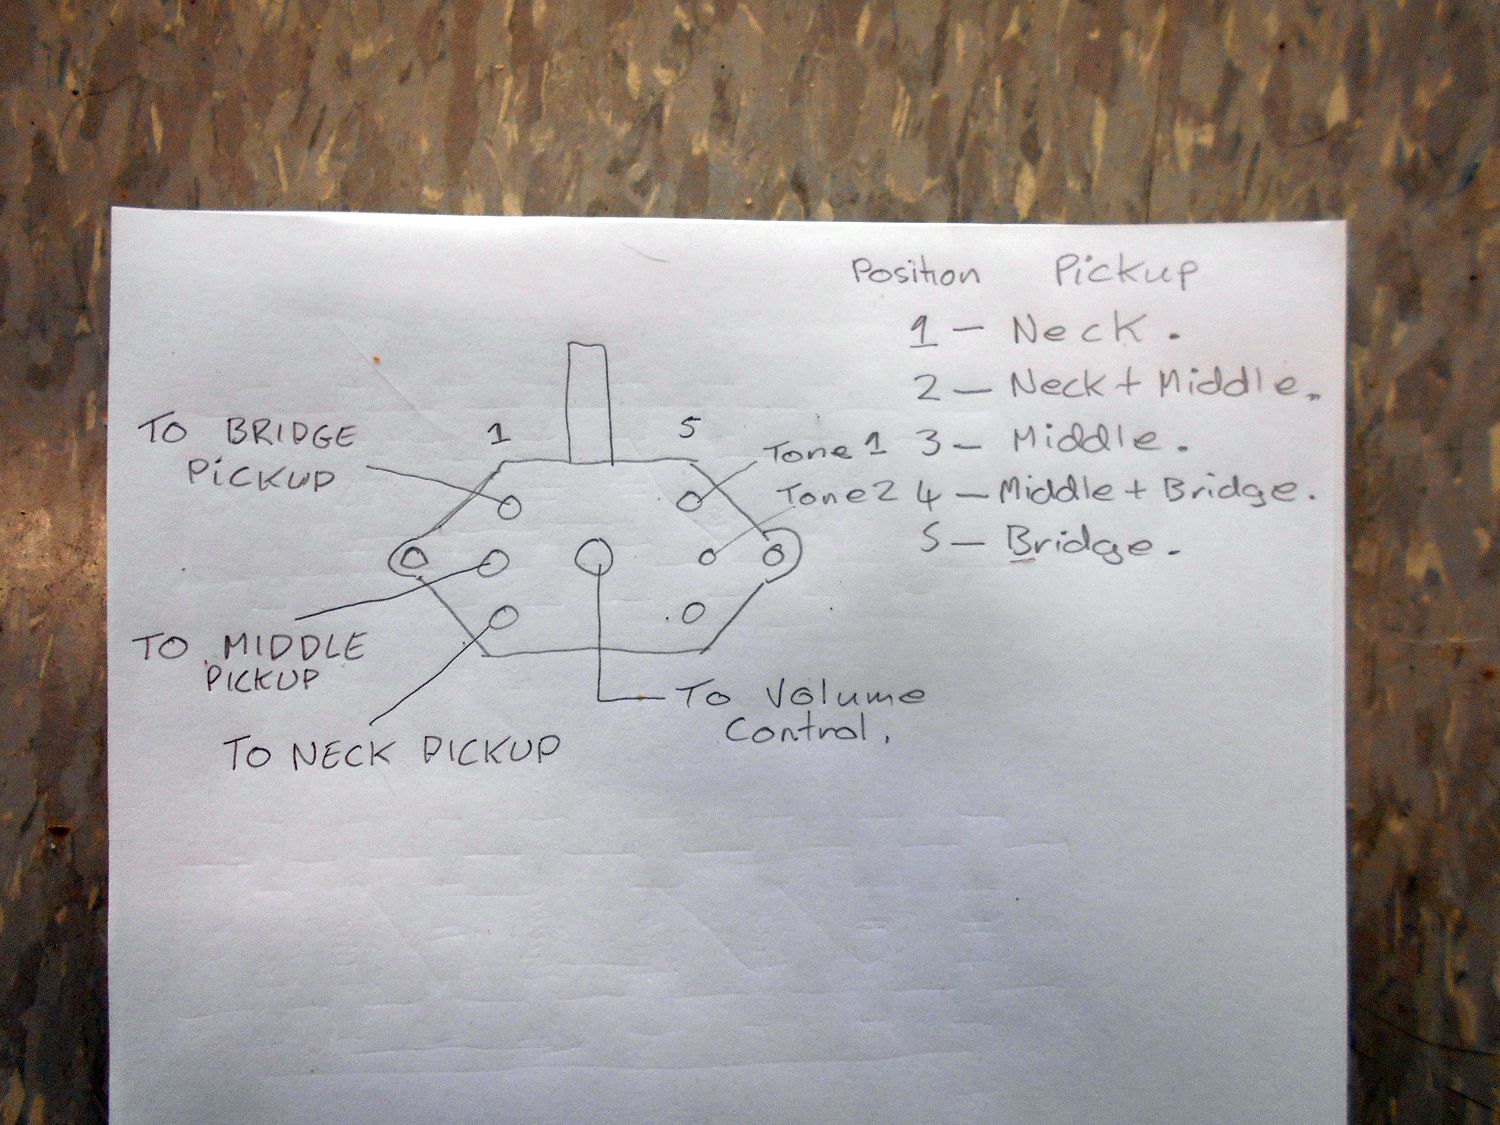 Position Pickup
1 — Neck.
2 — Neck + Middle.
3 — Middle.
4 — Middle + Bridge.
5 — Bridge.
TO BRIDGE
PICKUP
1
5
Tone 1
Tone 2
TO MIDDLE
PICKUP
TO NECK PICKUP
To Volume
Control.